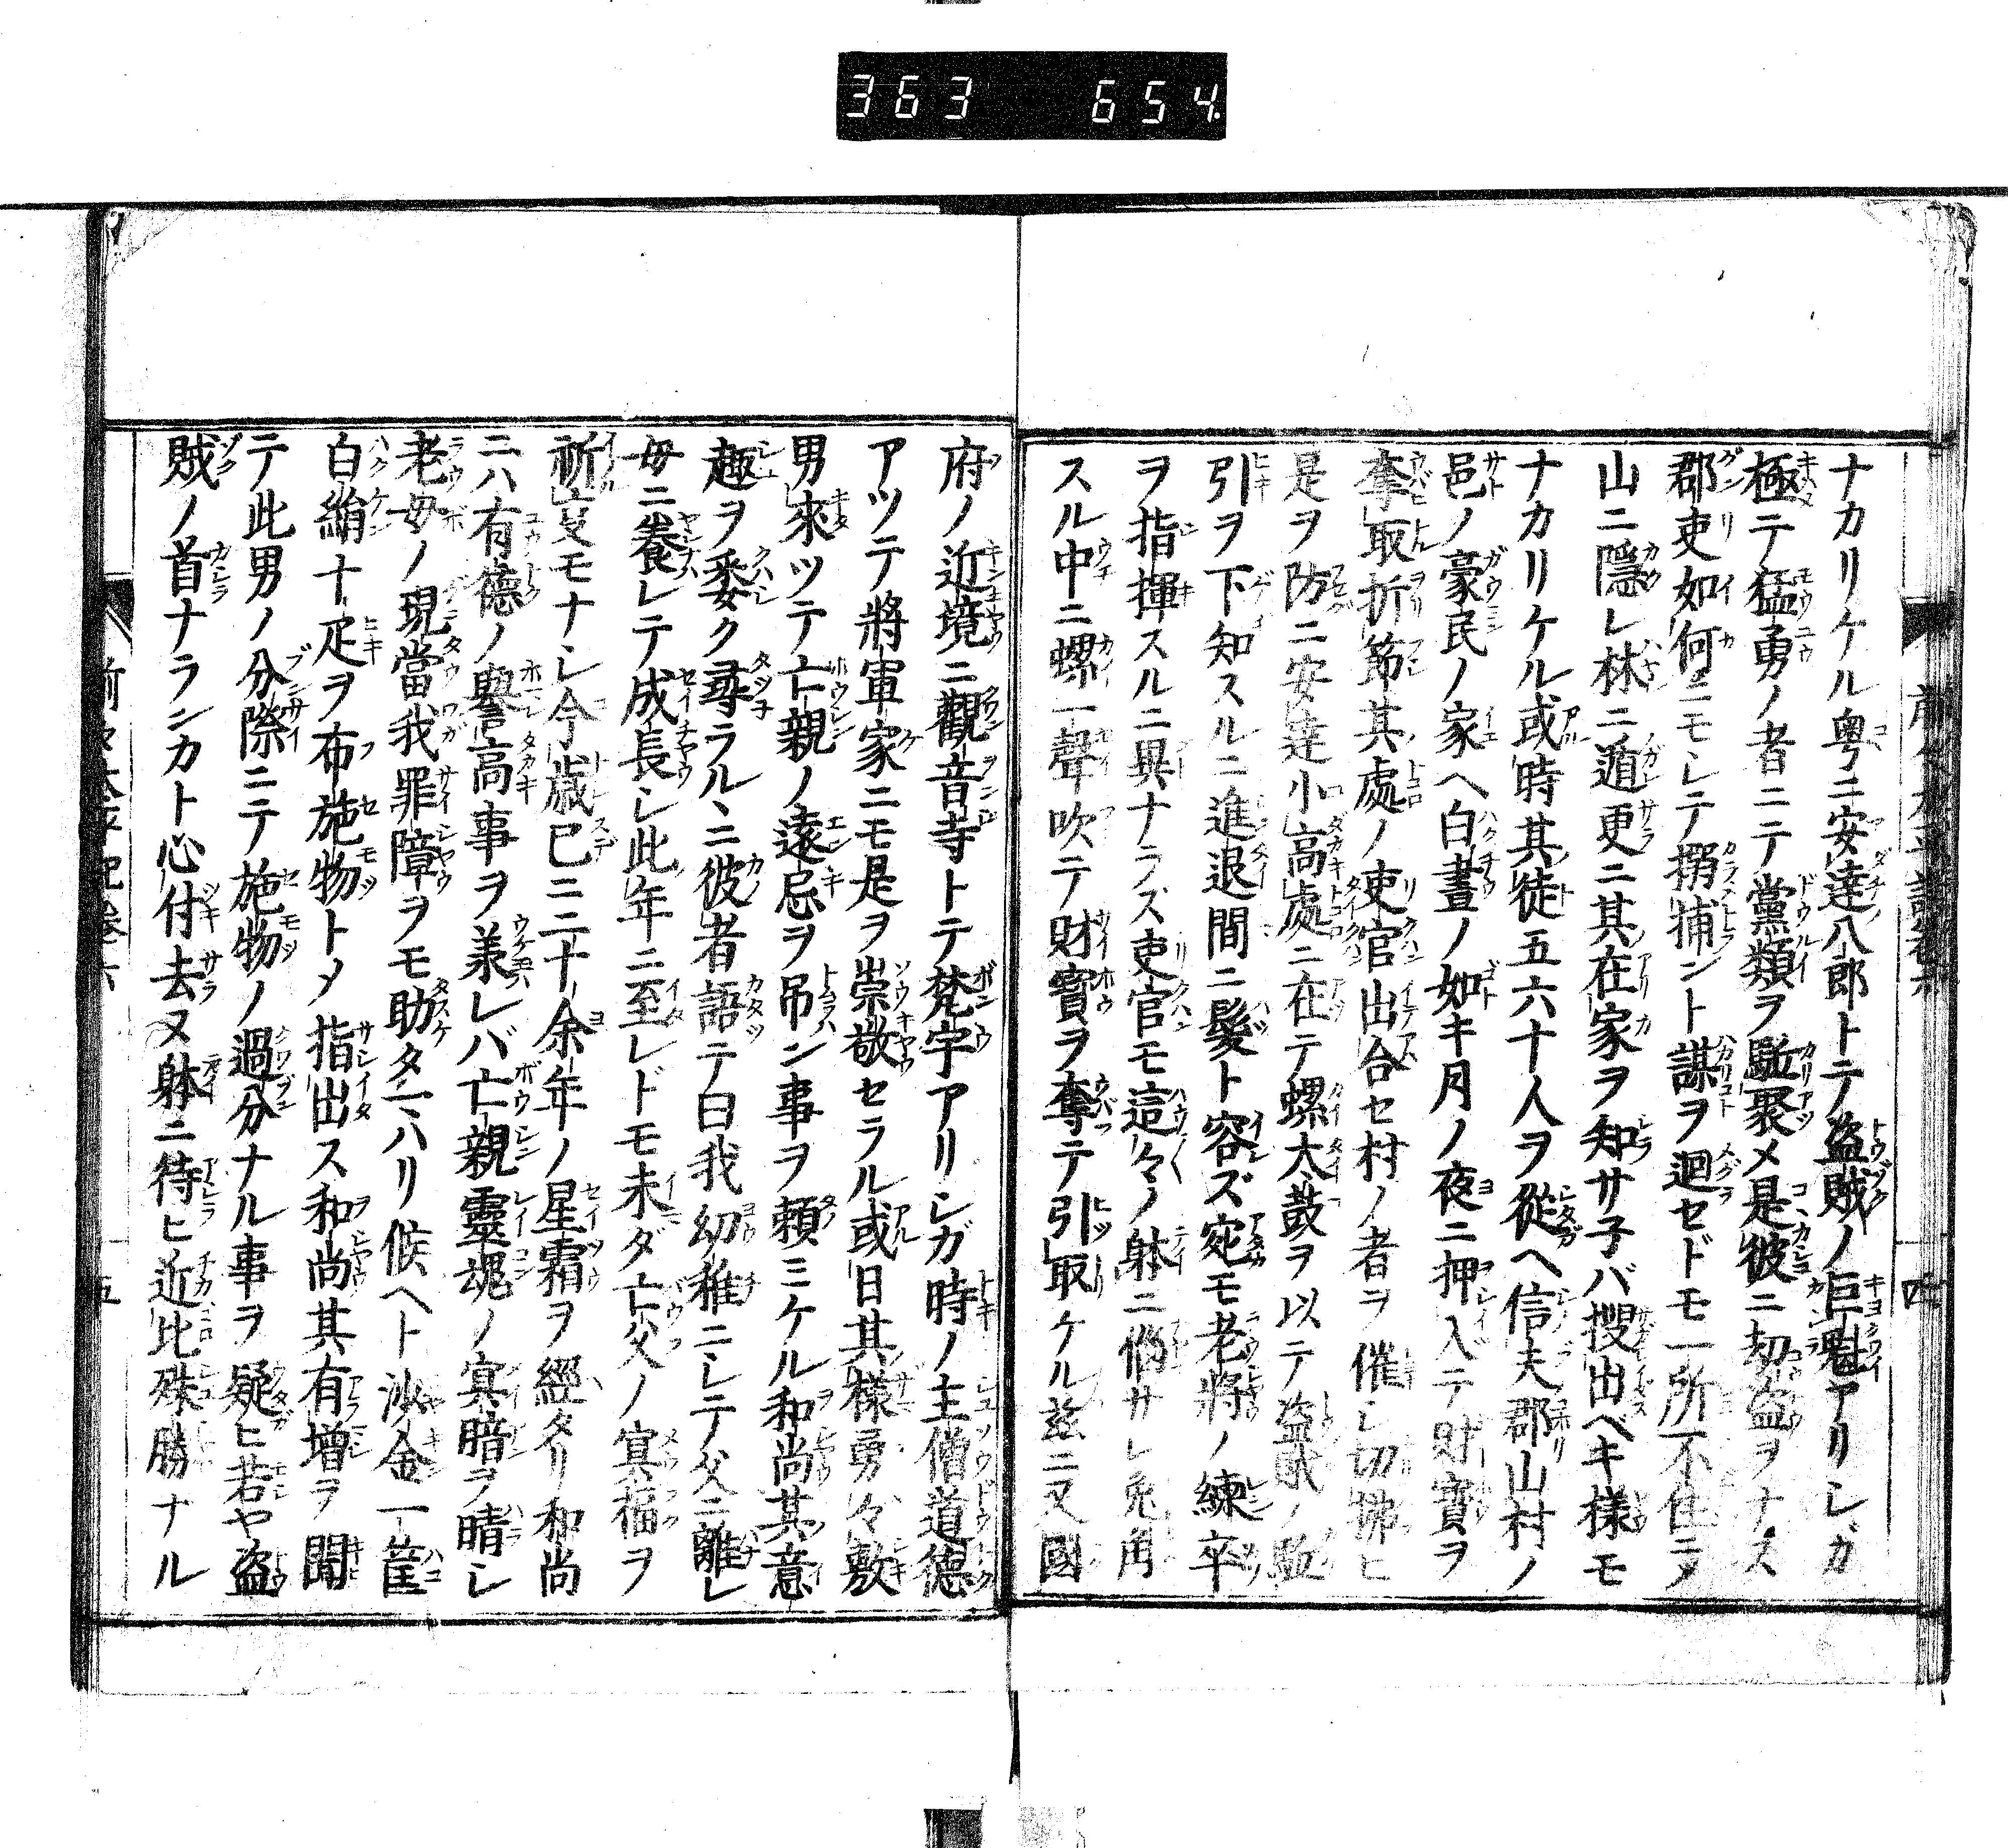 363 654
ナカリケル粤ニ安達八郎トテ盗賊ノ巨魁アリシガ
極テ猛勇ノ者ニテ黨類ヲ駈聚メ是彼ニ切盗ヲナス
郡吏如何ニモシテ搦捕ント謀ヲ廻セドモ一所不住ニテ
山ニ隠レ林ニ遁更ニ其在家ヲ知サ子バ捜出ベキ様モ
ナカリケル或時其徒五六十人ヲ從ヘ信夫郡山村ノ
邑ノ豪民ノ家ヘ白晝ノ如キ月ノ夜ニ押入テ財寳ヲ
奪取折節其處ノ吏官出合セ村ノ者ヲ催シ切拂ヒ
是ヲ防ニ安達小高處ニ在テ螺太鼓ヲ以テ盗賊ノ駈
引ヲ下知スルニ進退間ニ髪ト容ズ宛モ老將ノ練卒
ヲ指揮スルニ異ナラズ吏官モ這々ノ躰ニ悩サレ兎角
スル中ニ螺一聲吹テ財寳ヲ奪テ引取ケル茲ニ又國
府ノ近境ニ觀音寺トテ梵宇アリシガ時ノ主僧道德
アツテ將軍家ニモ是ヲ崇敬セラル或日其様勇々敷
男來ツテ亡親ノ遠忌ヲ吊ン事ヲ頼ミケル和尚其意
趣ヲ委ク尋ラルヽニ彼者語テ曰我幼稚ニシテ父ニ離レ
母ニ養レテ成長シ此年ニ至レドモ未ダ亡父ノ冥福ヲ
祈ル叓モナシ今歳已ニ二十余年ノ星霜ヲ經タリ和尚
ニハ有德ノ譽高事ヲ羕レバ亡親靈魂ノ冥暗ヲ晴シ
老母ノ現當我罪障ヲモ助タマハリ候ヘト沙金一筐
白絹十疋ヲ布施物トメ指出ス和尚其有増ヲ聞
テ此男ノ分際ニテ施物ノ過分ナル事ヲ疑ヒ若ヤ盗
賊ノ首ナランカト心付去ヌ躰ニ待ヒ近比殊勝ナル
五